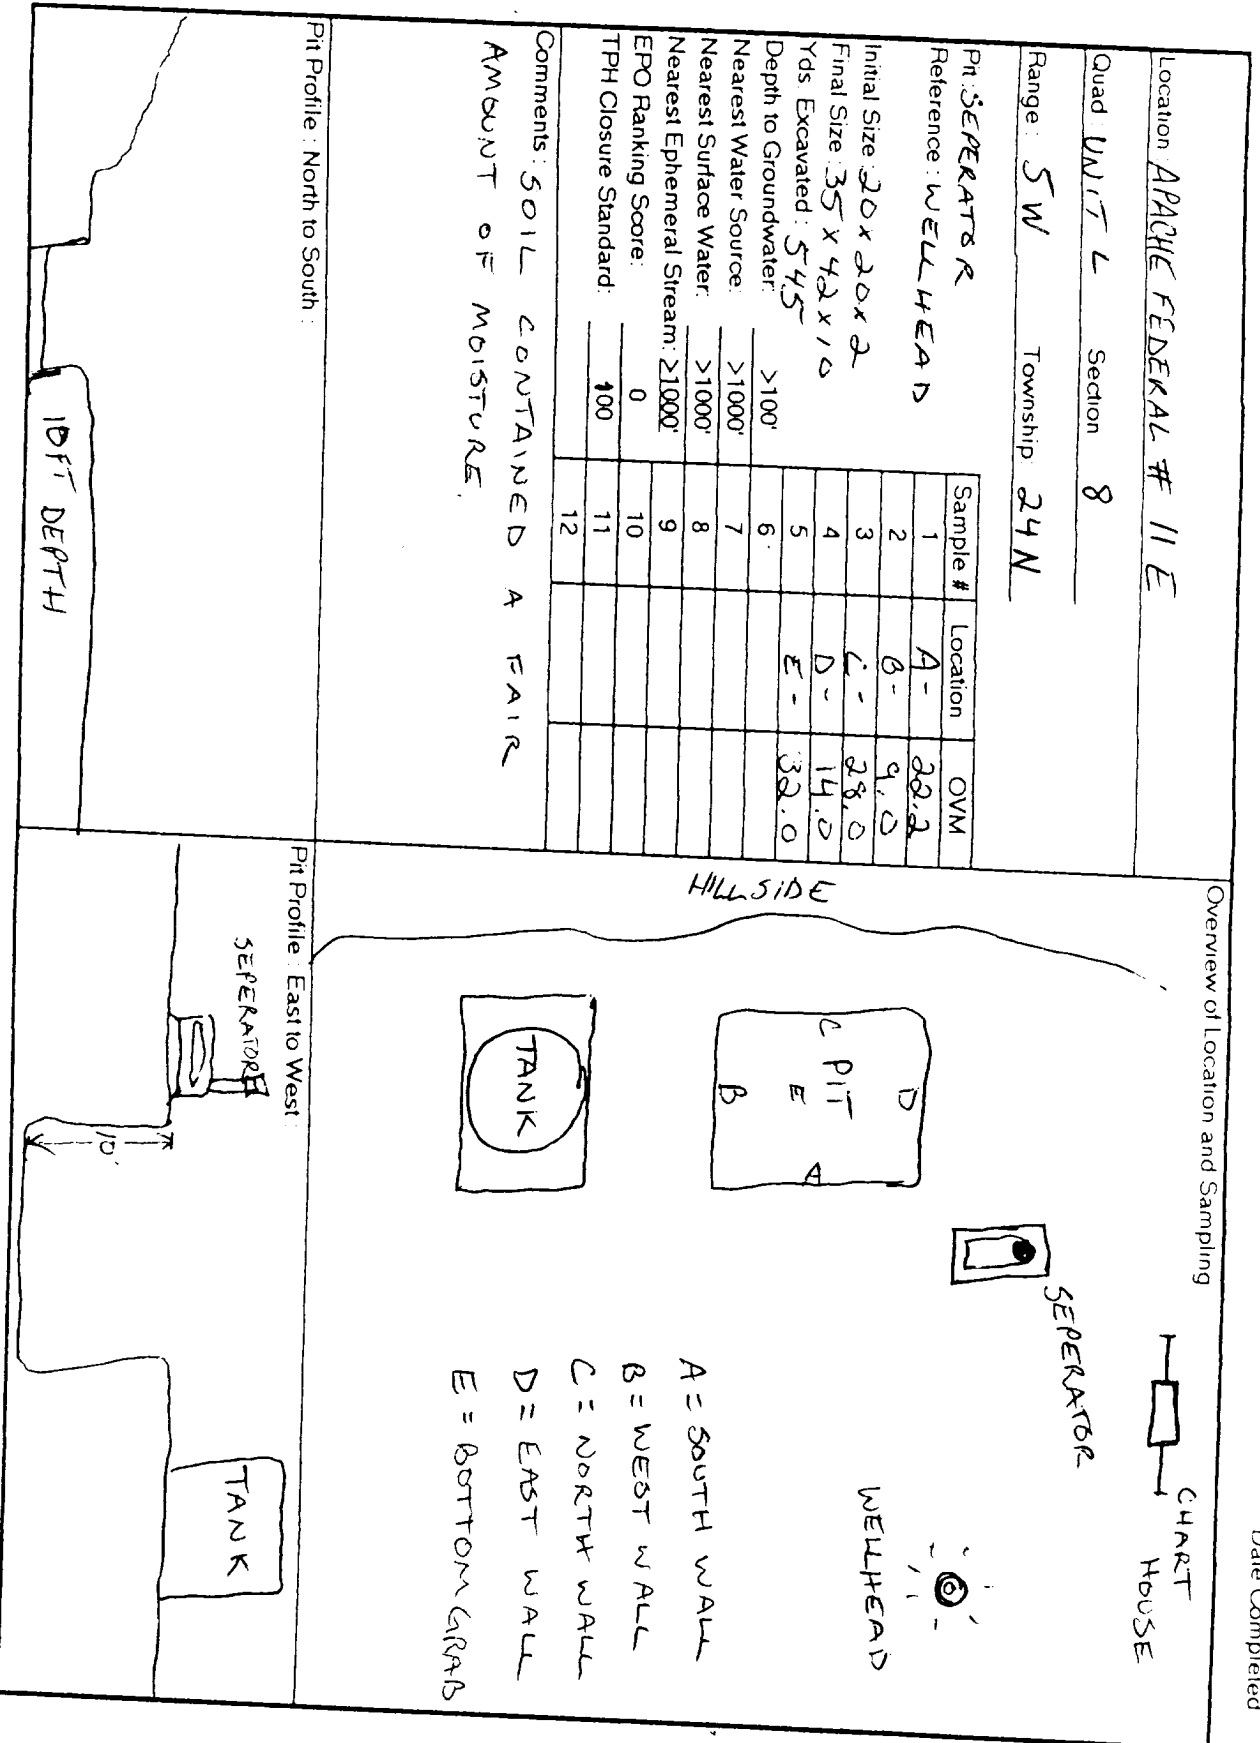 Date Completed
Location: APACHE FEDERAL # 11 E
Quad: UNIT L Section 8
Range: 5W Township: 24N
Pit: SEPERATOR
Reference: WELLHEAD
Initial Size: 20 x 20 x 2
Final Size: 35 x 42 x 10
Yds. Excavated: 545
Depth to Groundwater: >100'
Nearest Water Source: >1000'
Nearest Surface Water: >1000'
Nearest Ephemeral Stream: >1000'
EPO Ranking Score: 0
TPH Closure Standard: 100
Sample # Location OVM
1 A- 22.2
2 B- 9.0
3 C- 28.0
4 D- 14.0
5 E- 32.0
6
7
8
9
10
11
12
Comments: SOIL CONTAINED A FAIR
AMOUNT OF MOISTURE.
Overview of Location and Sampling
CHART
HOUSE
SEPERATOR
WELLHEAD
HILLSIDE
D
C PIT
E
A
B
TANK
A = SOUTH WALL
B = WEST WALL
C = NORTH WALL
D = EAST WALL
E = BOTTOM GRAB
Pit Profile: North to South:
10FT DEPTH
Pit Profile: East to West:
SEPERATOR
10'
TANK